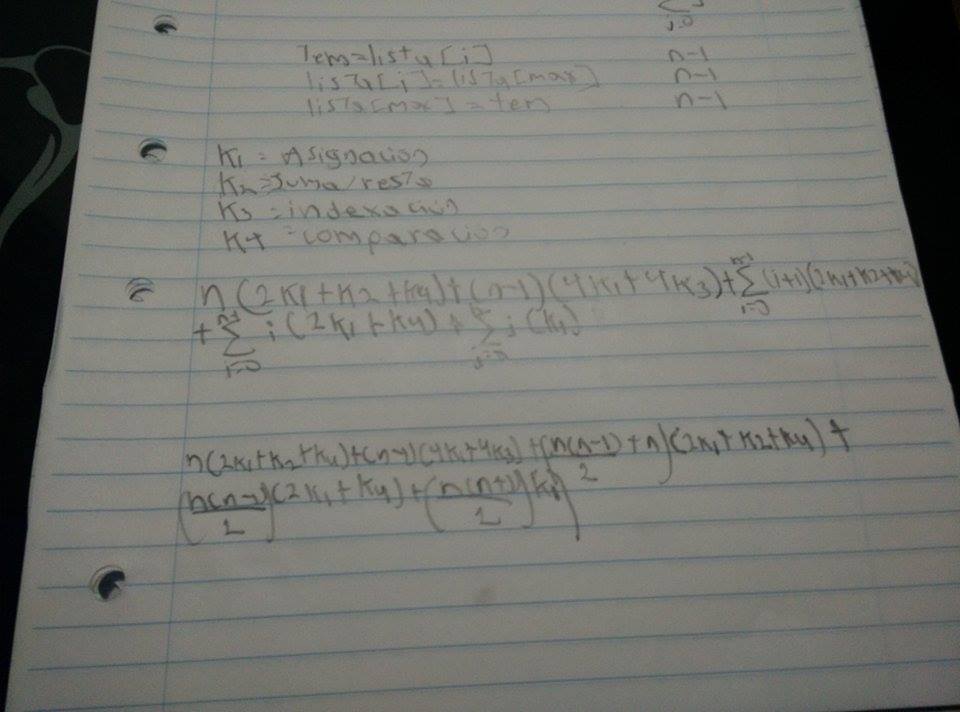 j=0
Tem=lista[i] n-1
lista[i]=lista[max] n-1
lista[max]=tem n-1
K1 = Asignacion
K2=Suma/resta
K3 =indexacion
K4 =comparacion
n(2K1+K2+K4)+(n-1)(4K1+4K3)+∑(i+1)(2K1+K2+K4)
n-1 i=0
+∑ i(2K1+K4)+∑ i(K1)
n-1 i=0
n(2K1+K2+K4)+(n-1)(4K1+4K3)+(n(n-1)/2+n)(2K1+K2+K4)+
(n(n-1)/2)(2K1+K4)+(n(n+1)/2)K1